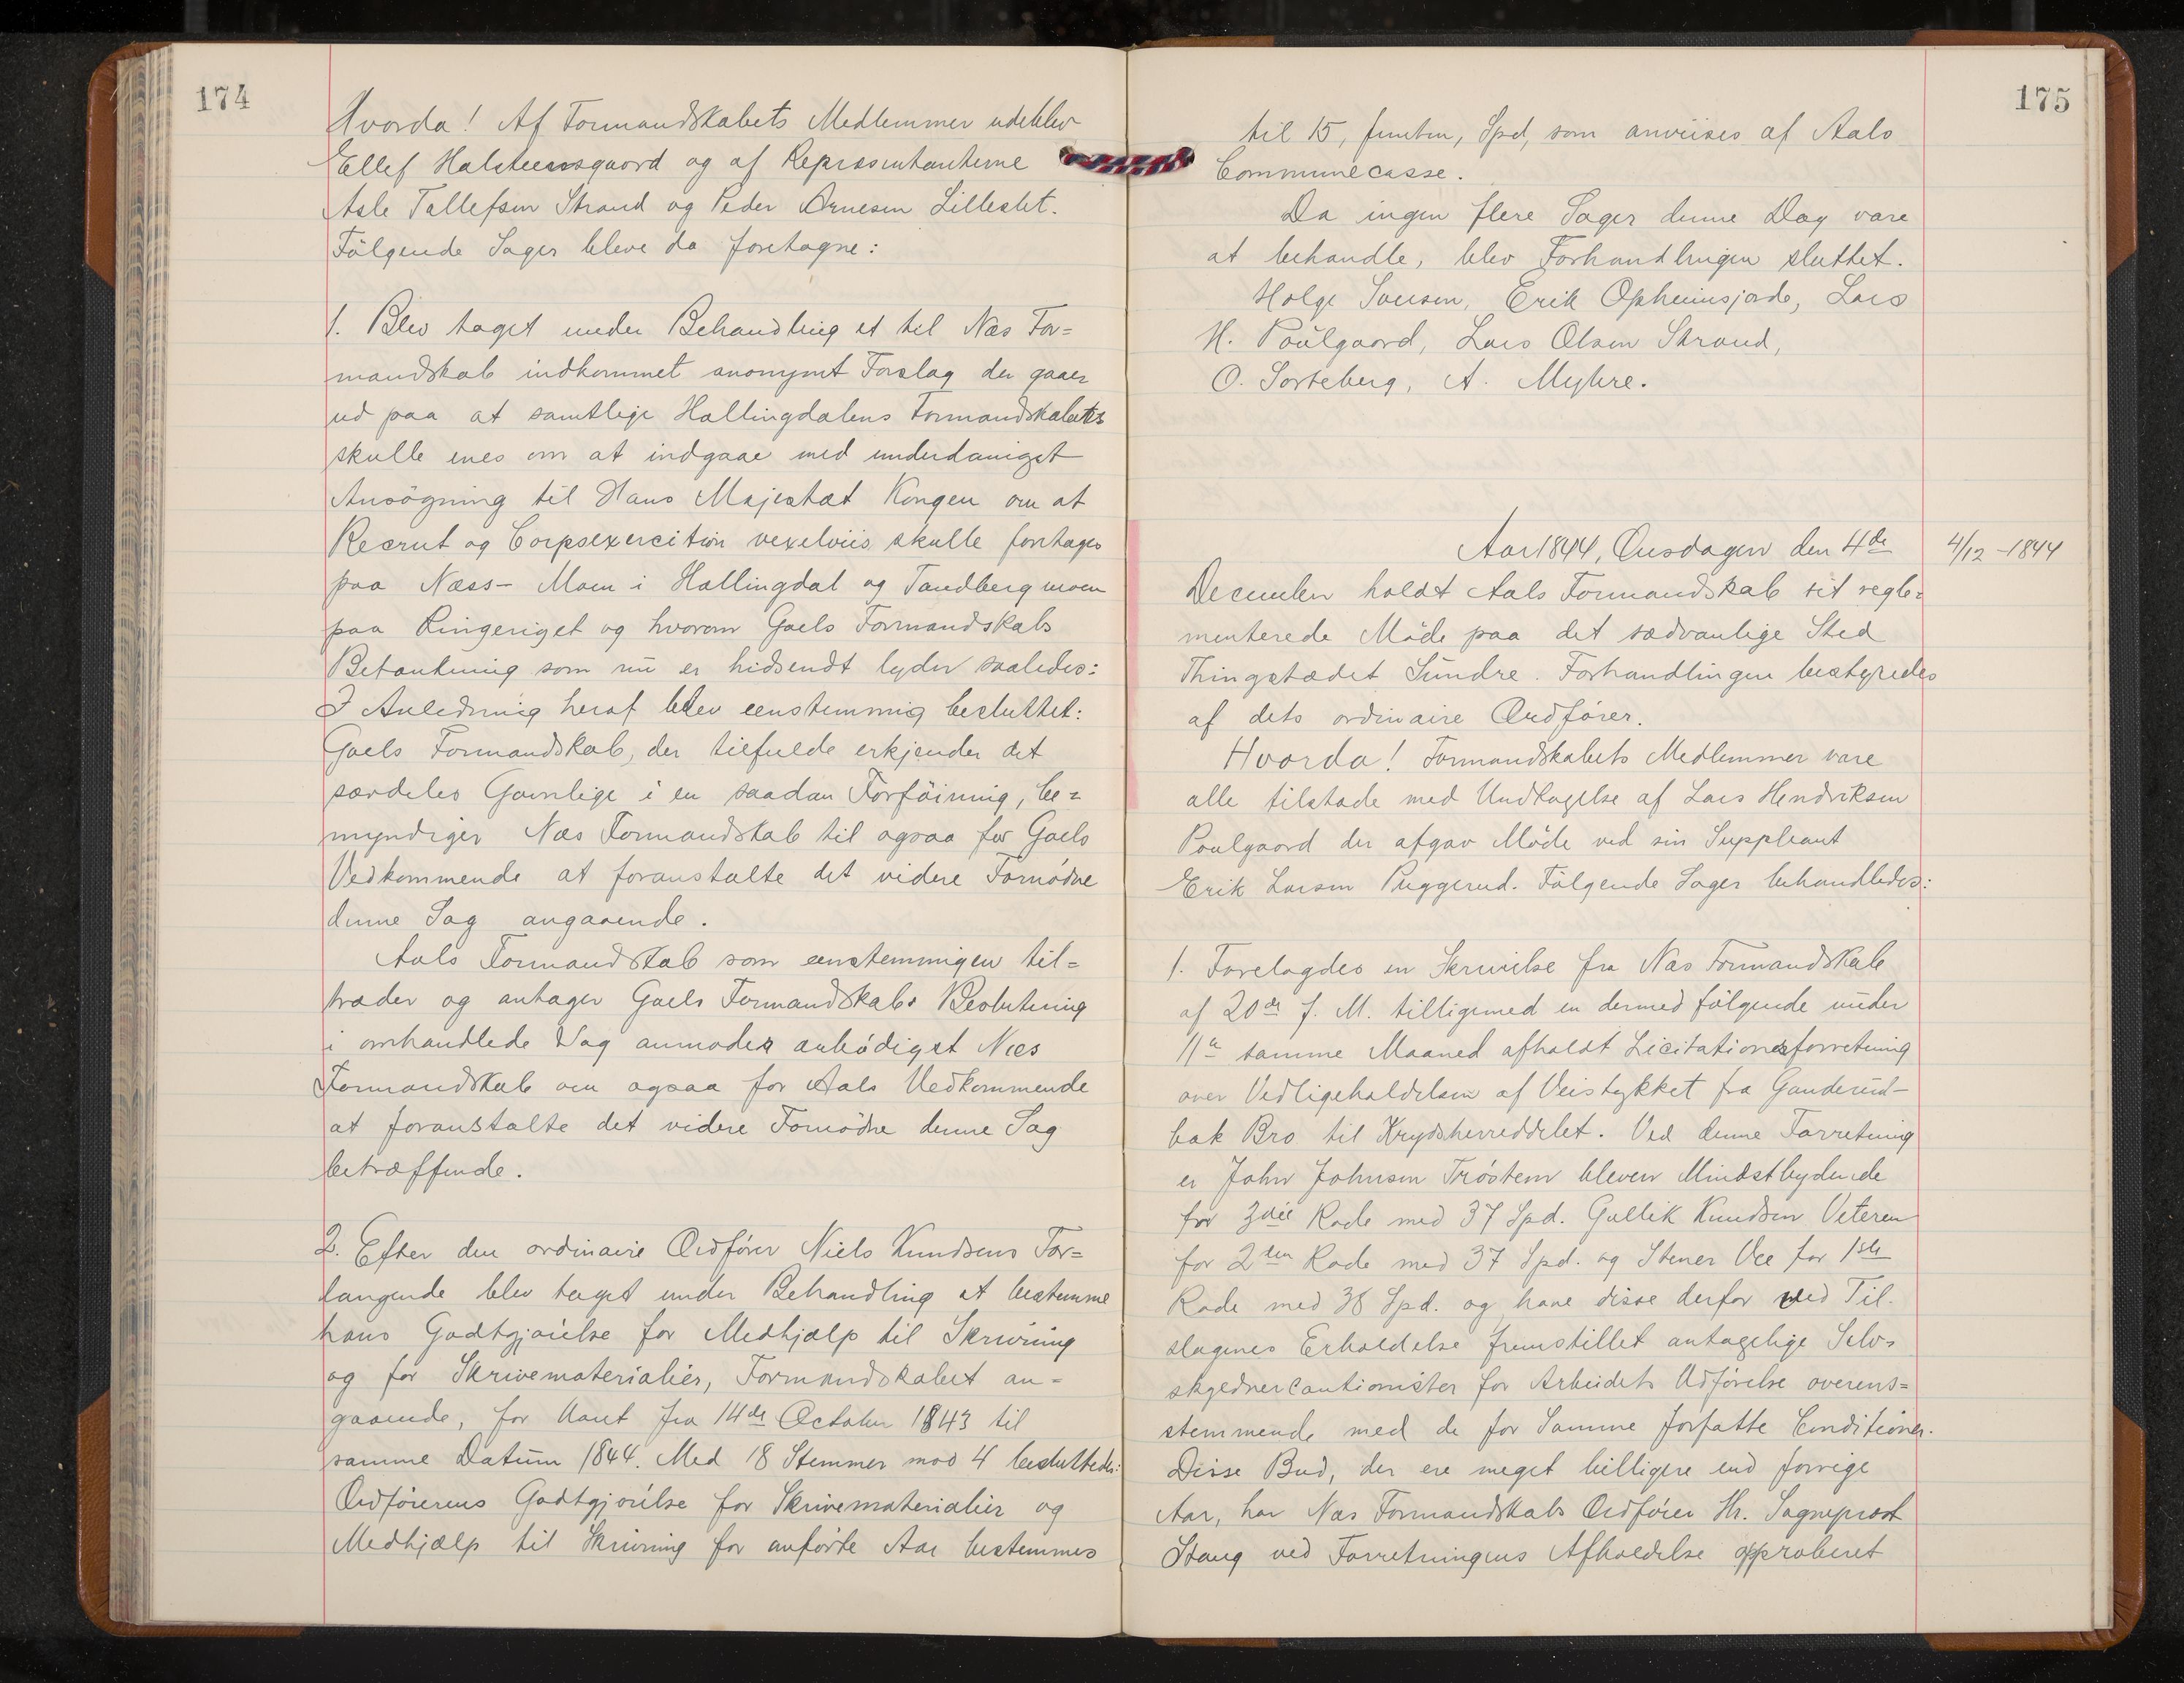 174
Hvorda! Af Formandskabets Medlemmer udeblev
Ellef Halsteensgaard og af Repræsentanterne
Asle Tollefsen Strand og Peder Arnesen Lilleslet.
Følgende Sager bleve da foretagne:
1. Blev taget under Behandling et til Næs For=
mandskab indkommet anonymt Forslag der gaaer
ud paa at samtlige Hallingdalens Formandskabets
skulle enes om at indgaae med underdanigst
Ansøgning til Hans Majestæt Kongen om at
Recrut og Corpsexercition vexelviis skulle foretages
paa Næss- Moen i Hallingdal og Tandberg moen
paa Ringeriget og hvorom Goels Formandskabs
Betænkning som nu er hidsendt lyder saaledes:
I Anledning heraf blev eenstemmig besluttet:
Goels Formandskab, der tilfulde erkjender det
særdeles Gavnlige i en saadan Forføining, be=
myndiger Næs Formandskab til ogsaa for Goels
Vedkommende at foranstalte det videre Fornødne
denne Sag angaaende.
Aals Formandskab som eenstemmigen til=
træder og antager Goels Formandskabs Beslutning
i omhandlede Sag anmoder ærbødigst Næs
Formandskab om ogsaa for Aals Vedkommende
at foranstalte det videre Fornødne denne Sag
betræffende.
2. Efter den ordinaire Ordfører Niels Knudsens For=
langende blev taget under Behandling at bestemme
hans Godtgjørelse for Medhjælp til Skrivning
og for Skrivematerialier, Formandskabet an=
gaaende, for Aaret fra 14de October 1843 til
samme Datum 1844. Med 18 Stemmer mod 4 besluttedes:
Ordførerens Godtgjørelse for Skrivematerialier og
Medhjælp til Skrivning for anførte Aar bestemmes
175
til 15, femten, Spd, som anviises af Aals
Communecasse.
Da ingen flere Sager denne Dag vare
at behandle, blev Forhandlingen sluttet.
Holge Svensen, Erik Opheimsjorde, Lars
H. Poülgaard, Lars Olsen Strand,
O. Sorteberg, A. Myhre.
Aar 1844, Onsdagen den 4de
4/12 -1844
December holdt Aals Formandskab sit regle=
menterede Møde paa det sædvanlige Sted
Thingstædet Sündre. Forhandlingen bestyredes
af dets ordinaire Ordfører.
Hvorda! Formandskabets Medlemmer vare
alle tilstæde med Undtagelse af Lars Hendriksen
Poulgaard der afgav Møde ved sin Suppleant
Erik Larsen Puggerud. Følgende Sager behandledes:
1. Forelagdes en Skrivelse fra Næs Formandskab
af 20de f. M. tilligemed en dermed følgende under
11te samme Maaned afholdt Licitationsforretning
over Vedligeholdelsen af Veistykket fra Ganderud-
bæk Bro til Krydsherreddelet. Ved denne Forretning
er John Johnsen Trøstem bleven Mindstbydende
for 3die Rode med 37 Spd. Gullik Knudsen Veteren
for 2den Rode med 37 Spd. og Stener Vee for 1ste
Rode med 38 Spd. og have disse derfor ved Til-
slagenes Erholdelse fremstillet antagelige Selv=
skyldnercautionister for Arbeidets Udførelse overens=
stemmende med de for Samme forfatte Conditioner.
Disse Bud, der ere meget billigere end forrige
Aar, har Næs Formandskabs Ordfører Hr. Sogneprest
Stang ved Forretningens Afholdelse approberet